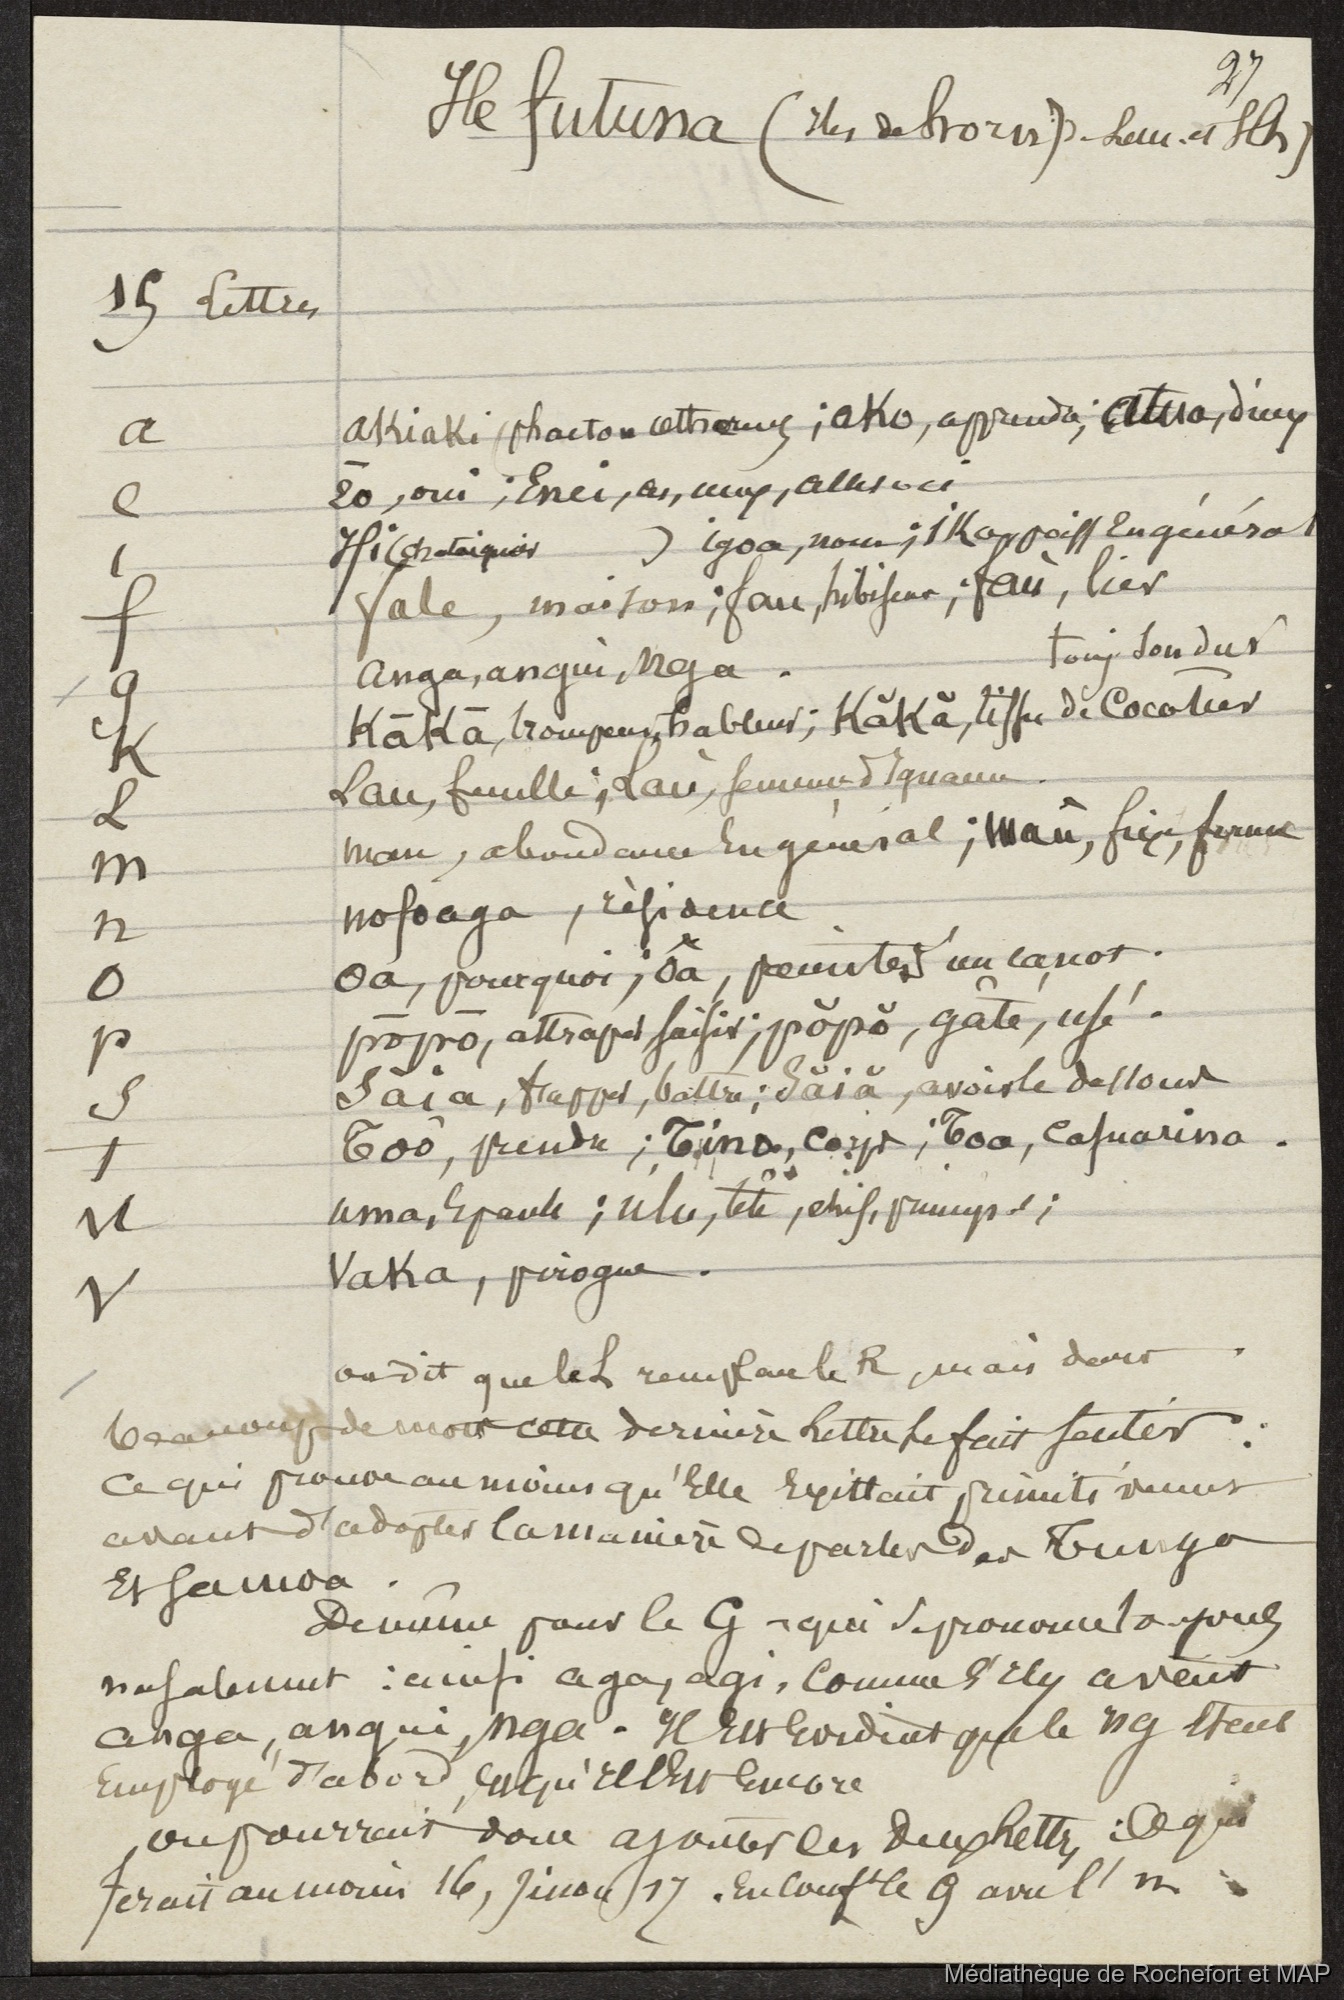 27
Ile futuna (Iles de hrorn). Lem. et Sch)
15 Lettres
a akiaki (phaeton œthereus; ako, apprendre; atua, dieux
e ēo, oui; Enei, eux, celles-ci
i Ifi (chataigner ) igoa, nom; ika, poiss En général
f fale, maison; fau, hibiscus; faù, lier
g anga, angui, nga. touj. son dur
K KāKā, trompeur, hableur; KăKă, tissu de Cocotier
L Lau, feuille; Laù, semence d'Igname.
m mau, abondance En général; maû, fixe, ferme
n nofoaga, résidence
o oa, pourquoi; ôâ, pointes d'un canot.
p pōpō, attraper saisir; pŏpŏ, gâté, usé.
S Sāia, frapper, battre; Săiă, avoir le dessous
T Toô, prendre; Tino, corps; Toa, Casuarina.
U uma, Epaule; ulu, tête, chef, principal;
V Vaka, pirogue.
on dit que le L remplace le R, mais dans
beaucoup de mots cette dernière Lettre se fait sentir:
ce qui prouve au moins qu'Elle Existait primitivement
avant d'adopter la manière de parler des Tunga
Et Samoa.
De même pour le G qui se prononce
nasalement: ainsi aga, agi, comme s'Il y avait
anga, angui, nga. Il Est Evident que le ng Etait
Employé d'abord, Et qu'Il l'Est Encore
on pourrait donc ajouter les deux Lettr, : Ce qui
ferait au moins 16, sinon 17. En conft le g avec l'n
Médiathèque de Rochefort et MAP